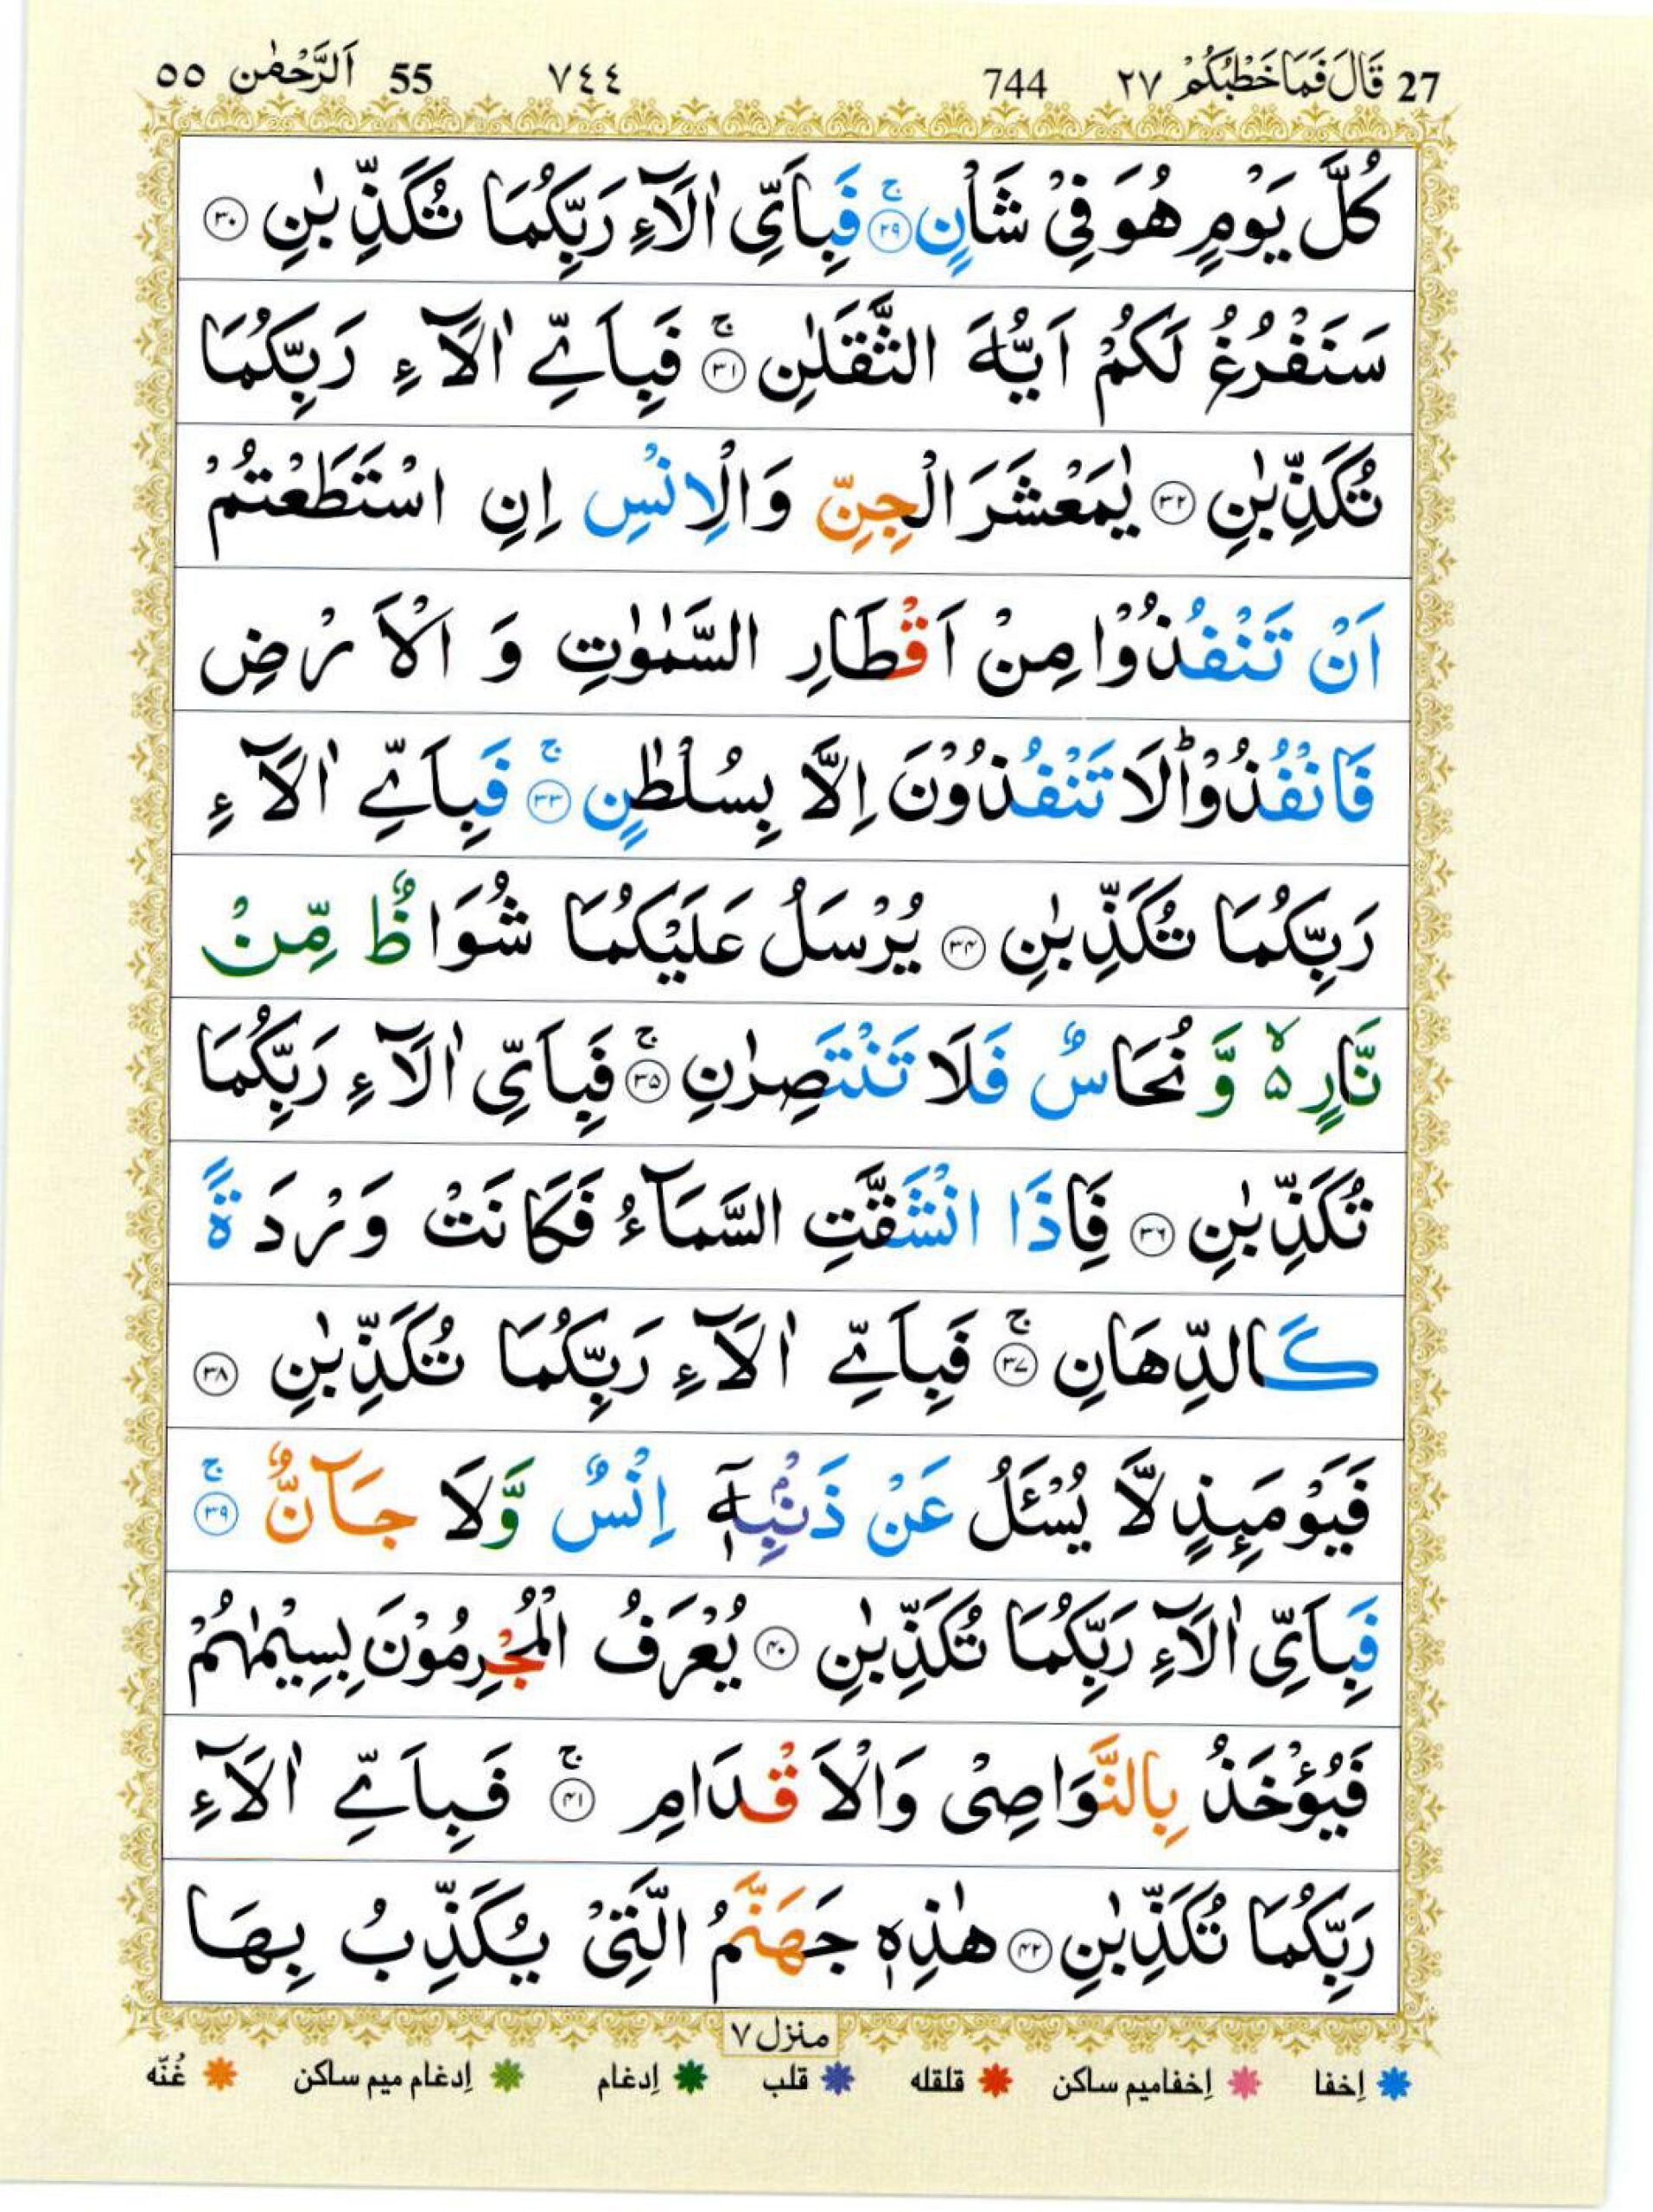 27 قَالَ فَمَا خَطْبُكُمْ ٢٧ 744 ٧٤٤ 55 اَلرَّحْمٰن ٥٥
كُلَّ يَوْمٍ هُوَ فِیْ شَاْنٍ ۚ﴿۲۹﴾ فَبِاَیِّ اٰلَآءِ رَبِّكُمَا تُكَذِّبٰنِ ﴿۳۰﴾
سَنَفْرُغُ لَكُمْ اَیُّهَ الثَّقَلٰنِ ۚ﴿۳۱﴾ فَبِاَیِّ اٰلَآءِ رَبِّكُمَا
تُكَذِّبٰنِ ﴿۳۲﴾ یٰمَعْشَرَ الْجِنِّ وَالْاِنْسِ اِنِ اسْتَطَعْتُمْ
اَنْ تَنْفُذُوْا مِنْ اَقْطَارِ السَّمٰوٰتِ وَ الْاَرْضِ
فَانْفُذُوْا ؕ لَا تَنْفُذُوْنَ اِلَّا بِسُلْطٰنٍ ۚ﴿۳۳﴾ فَبِاَیِّ اٰلَآءِ
رَبِّكُمَا تُكَذِّبٰنِ ﴿۳۴﴾ یُرْسَلُ عَلَیْكُمَا شُوَاظٌ مِّنْ
نَّارٍ ۬ۙ۵ وَّ نُحَاسٌ فَلَا تَنْتَصِرٰنِ ۚ﴿۳۵﴾ فَبِاَیِّ اٰلَآءِ رَبِّكُمَا
تُكَذِّبٰنِ ﴿۳۶﴾ فَاِذَا انْشَقَّتِ السَّمَآءُ فَكَانَتْ وَرْدَةً
كَالدِّهَانِ ۚ﴿۳۷﴾ فَبِاَیِّ اٰلَآءِ رَبِّكُمَا تُكَذِّبٰنِ ﴿۳۸﴾
فَیَوْمَىِٕذٍ لَّا یُسْـَٔلُ عَنْ ذَنْۢبِهٖۤ اِنْسٌ وَّلَا جَآنٌّ ۚ﴿۳۹﴾
فَبِاَیِّ اٰلَآءِ رَبِّكُمَا تُكَذِّبٰنِ ﴿۴۰﴾ یُعْرَفُ الْمُجْرِمُوْنَ بِسِیْمٰهُمْ
فَیُؤْخَذُ بِالنَّوَاصِیْ وَالْاَقْدَامِ ۚ﴿۴۱﴾ فَبِاَیِّ اٰلَآءِ
رَبِّكُمَا تُكَذِّبٰنِ ﴿۴۲﴾ هٰذِهٖ جَهَنَّمُ الَّتِیْ یُكَذِّبُ بِهَا
منزل ٧
اِخفا اِخفا میم ساکن قلقله قلب اِدغام اِدغام میم ساکن غُنّه